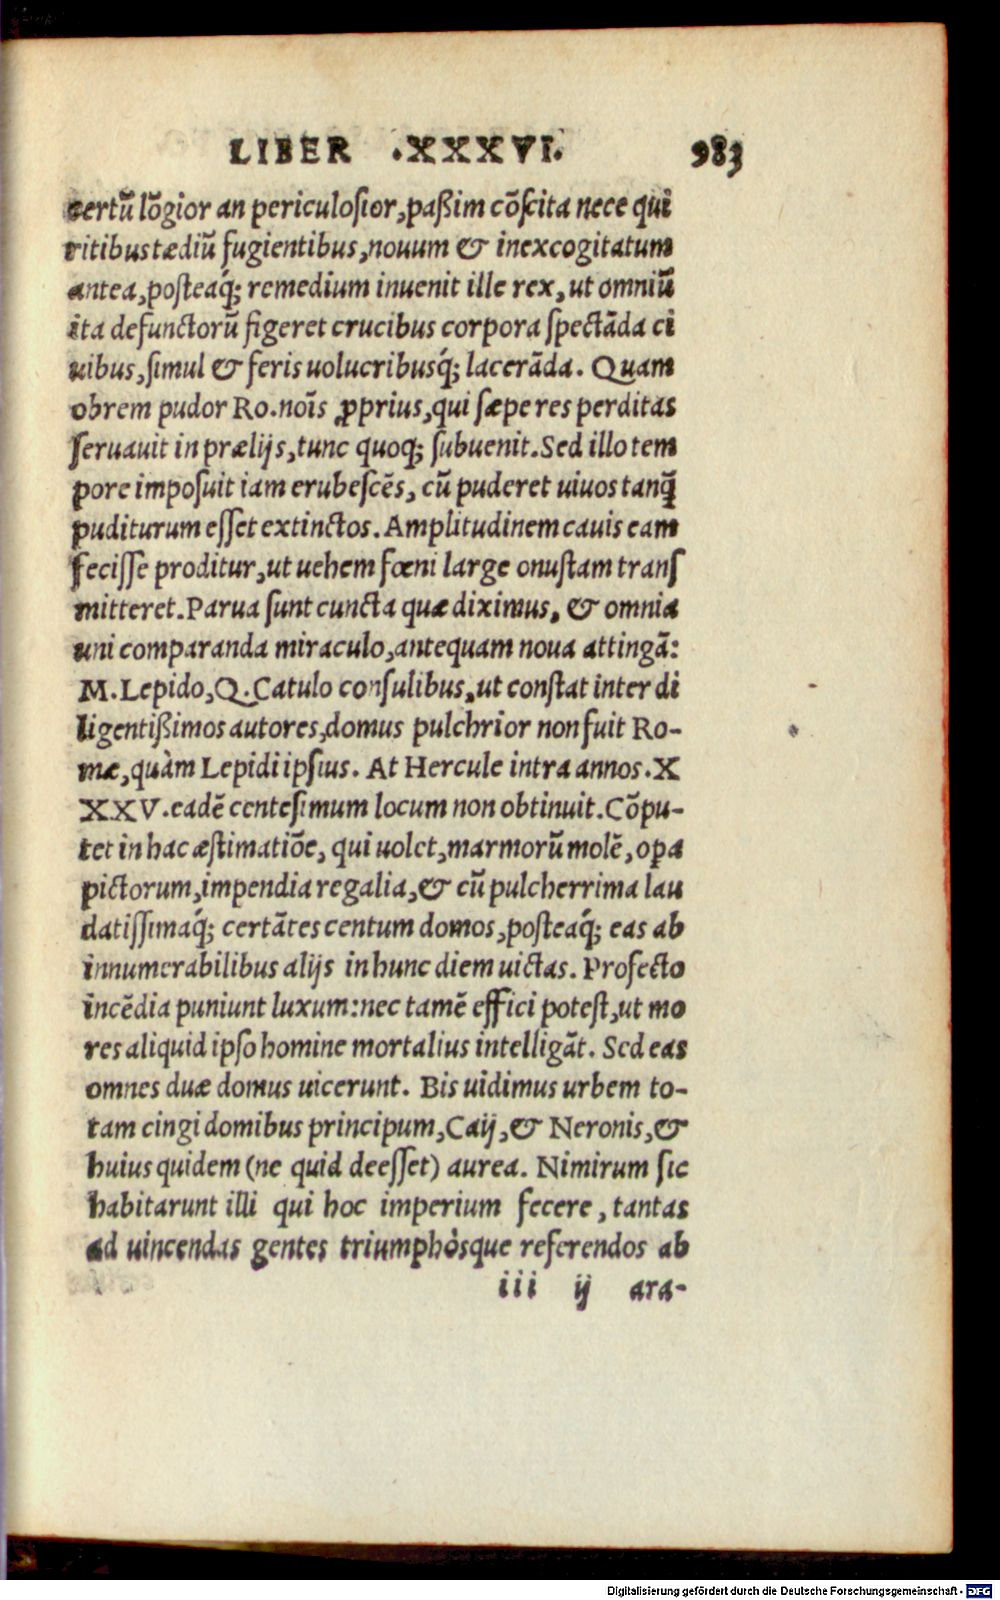 LIBER .XXXVI. 983
certũ lõgior an periculoſior, paßim cõſcita nece qui
ritibus tædiũ fugientibus, nouum & inexcogitatum
antea, poſteaq́; remedium inuenit ille rex, ut omniũ
ita defunctorũ figeret crucibus corpora ſpectãda ci
uibus, ſimul & feris uolucribusq́; lacerãda. Quam
obrem pudor Ro. noĩs ꝓprius, qui ſæpe res perditas
ſeruauit in prælijs, tunc quoq; ſubuenit. Sed illo tem
pore impoſuit iam erubeſcẽs, cũ puderet uiuos tanq̃
puditurum eſſet extinctos. Amplitudinem cauis eam
feciſſe proditur, ut uehem fœni large onuſtam tranſ
mitteret. Parua ſunt cuncta quæ diximus, & omnia
uni comparanda miraculo, antequam noua attingã:
M. Lepido, Q. Catulo conſulibus, ut conſtat inter di
ligentißimos autores, domus pulchrior non fuit Ro-
mæ, quàm Lepidi ipſius. At Hercule intra annos. X
XXV. eadẽ centeſimum locum non obtinuit. Cõpu-
tet in hac æſtimatiõe, qui uolet, marmorũ molẽ, oꝑa
pictorum, impendia regalia, & cũ pulcherrima lau
datiſſimaq́; certãtes centum domos, poſteaq́; eas ab
innumerabilibus alijs in hunc diem uictas. Profecto
incẽdia puniunt luxum: nec tamẽ effici poteſt, ut mo
res aliquid ipſo homine mortalius intelligãt. Sed eas
omnes duæ domus uicerunt. Bis uidimus urbem to-
tam cingi domibus principum, Caij, & Neronis, &
huius quidem (ne quid deeſſet) aurea. Nimirum ſic
habitarunt illi qui hoc imperium fecere, tantas
ad uincendas gentes triumphòsque referendos ab
iii ij ara-
Digitalisierung gefördert durch die Deutsche Forschungsgemeinschaft - DFG